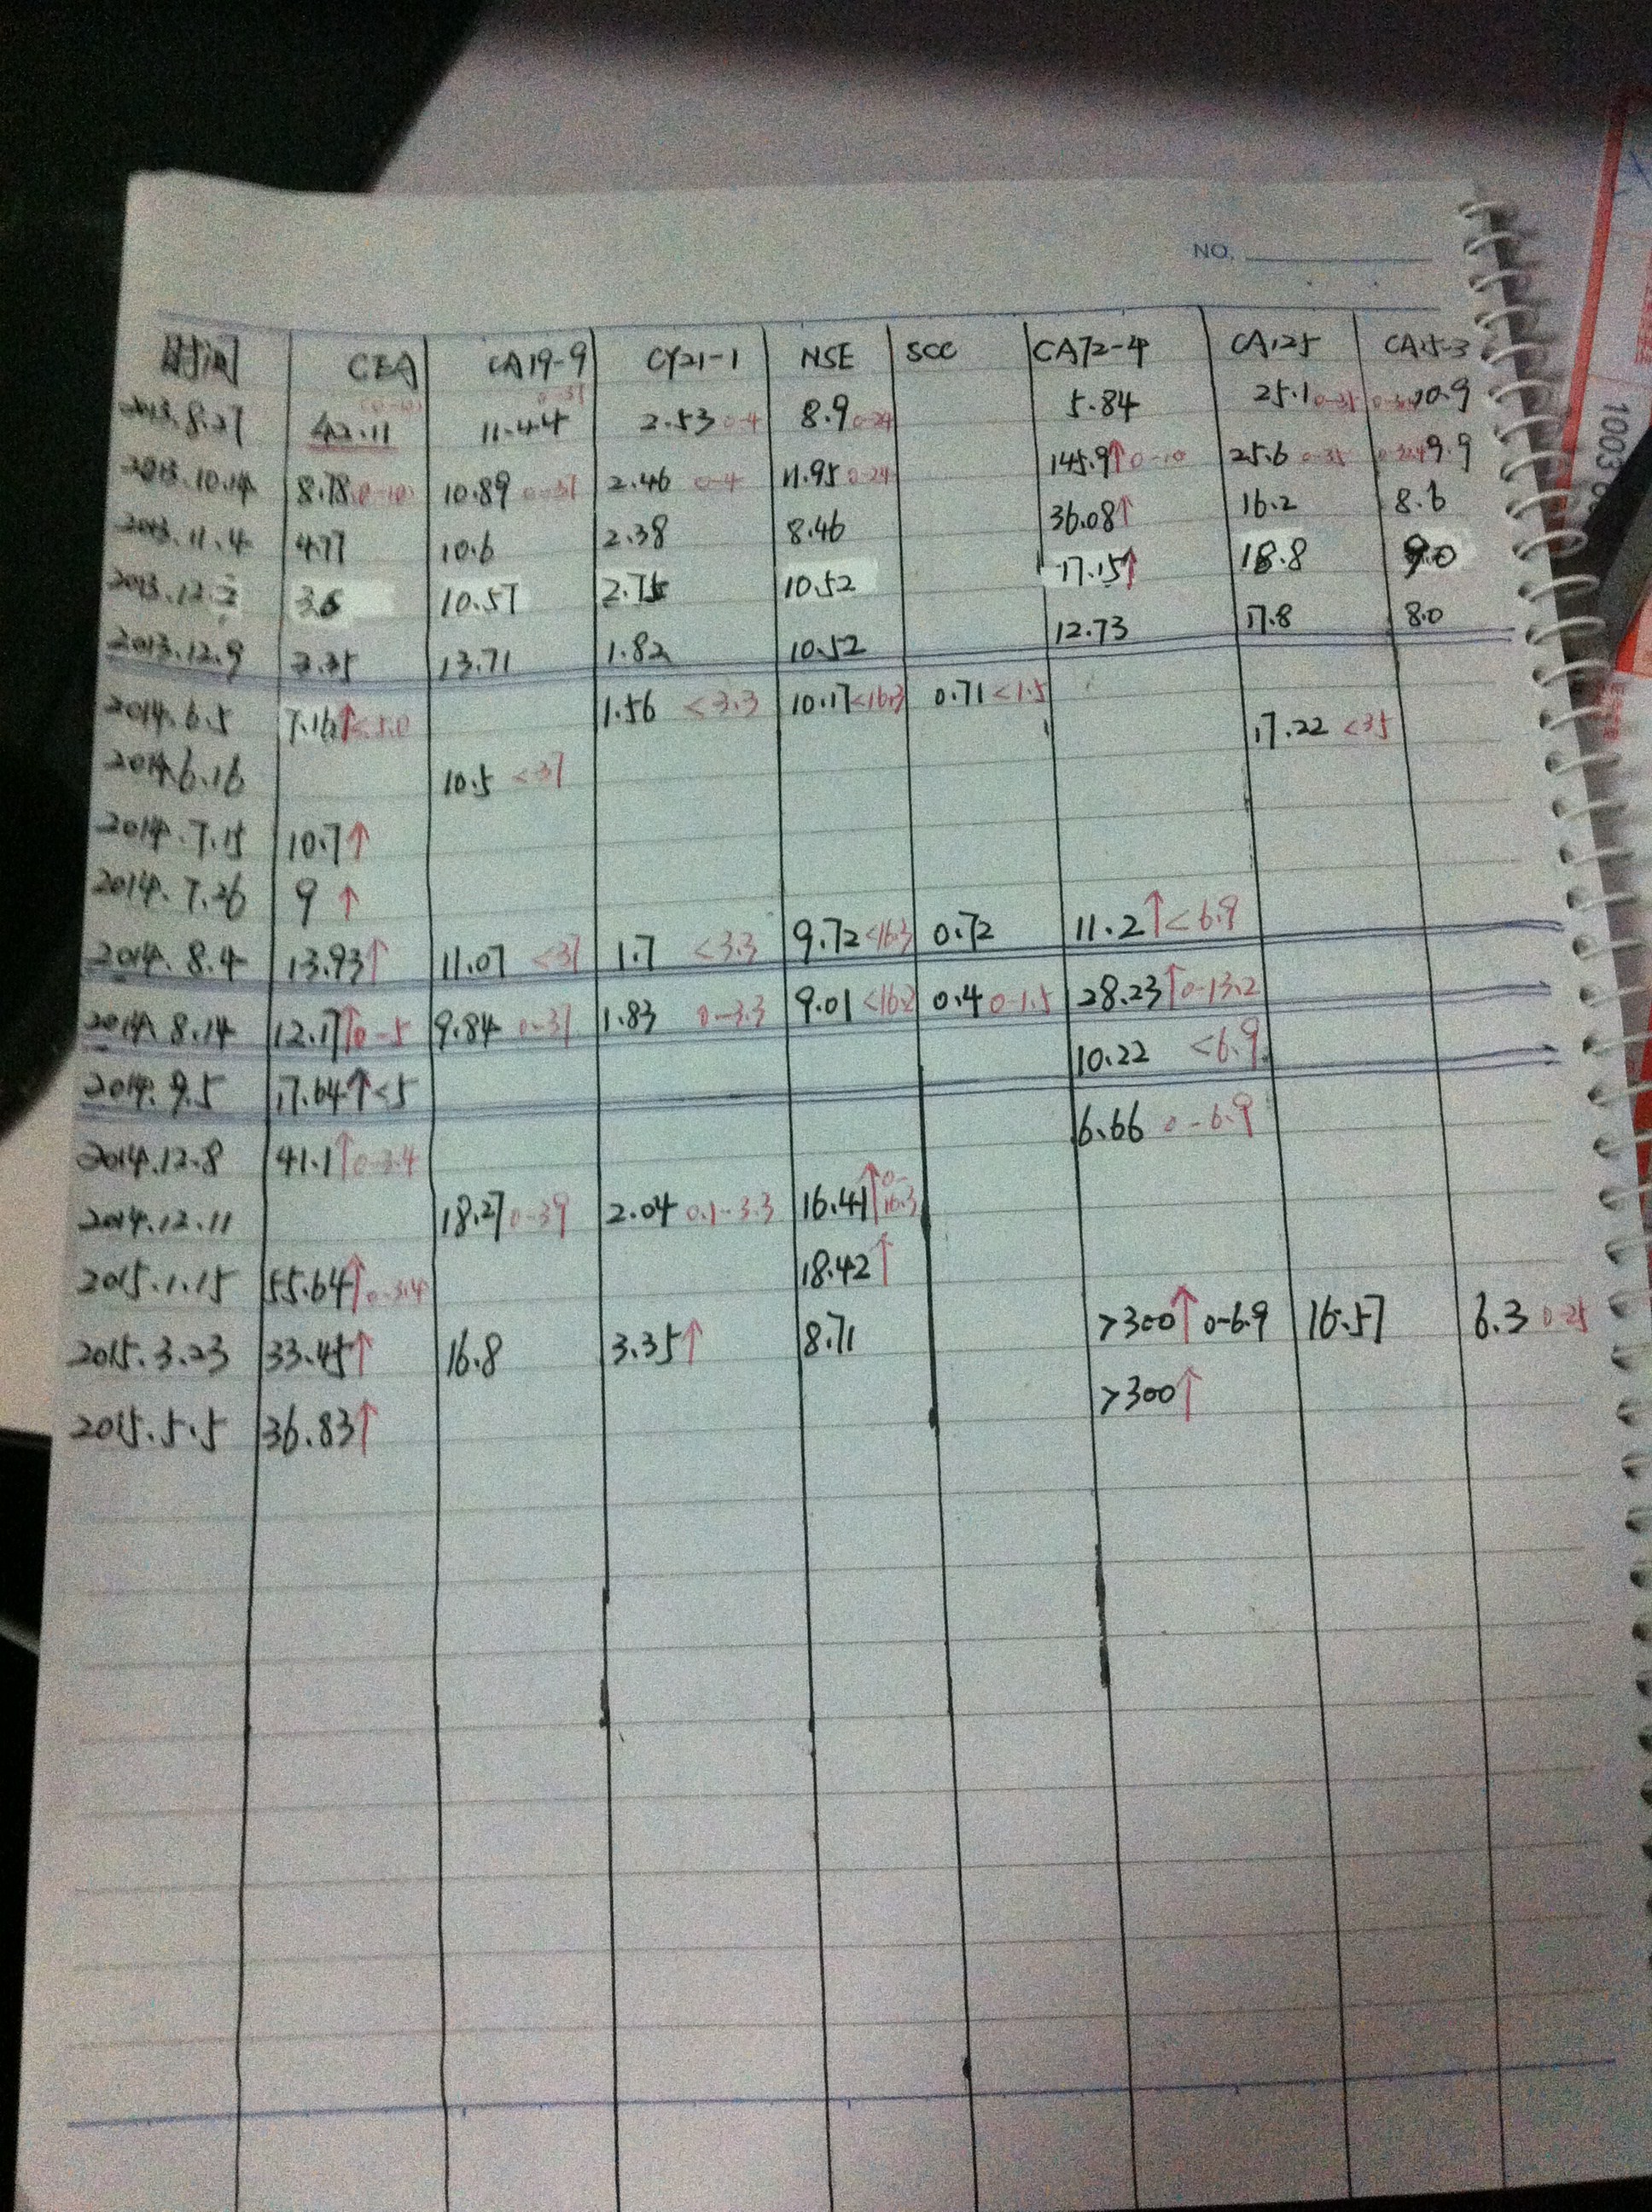 NO.
时间 CEA CA19-9 CY21-1 NSE SCC CA72-4 CA125 CA15-3
2013.8.27 42.11 (0-10) 11.44 0-37 2.53 0-4 8.9 0-24 5.84 25.1 0-35 10.9
2013.10.14 8.78 0-10 10.89 0-37 2.46 0-4 11.95 0-24 145.9↑ 0-10 25.6 0-35 9.9
2013.11.4 4.77 10.6 2.38 8.46 36.08↑ 16.2 8.6
2013.12.2 3.6 10.57 2.75 10.52 17.15↑ 18.8 9.0
2013.12.9 3.35 13.71 1.82 10.52 12.73 17.8 8.0
2014.6.5 7.16↑<5.0 1.56 <3.3 10.17<16.3 0.71<1.5
2014.6.16 10.5 <37 17.22 <35
2014.7.15 10.7↑
2014.7.26 9 ↑
2014.8.4 13.93↑ 11.07 <37 1.7 <3.3 9.72<16.3 0.72 11.2↑<6.9
2014.8.14 12.17↑0-5 9.84 0-37 1.83 0-3.3 9.01<16.2 0.4 0-1.5 28.23↑0-13.2
2014.9.5 17.64↑<5 10.22 <6.9
2014.12.8 41.1↑0-3.4 6.66 0-6.9
2014.12.11 18.27 0-39 2.04 0.1-3.3 16.41↑0-16.3
2015.1.15 55.64↑0-3.4 18.42↑
2015.3.23 33.45↑ 16.8 3.35↑ 8.71 >300↑0-6.9 16.57 6.3 0-25
2015.5.5 36.83↑ >300↑
1003